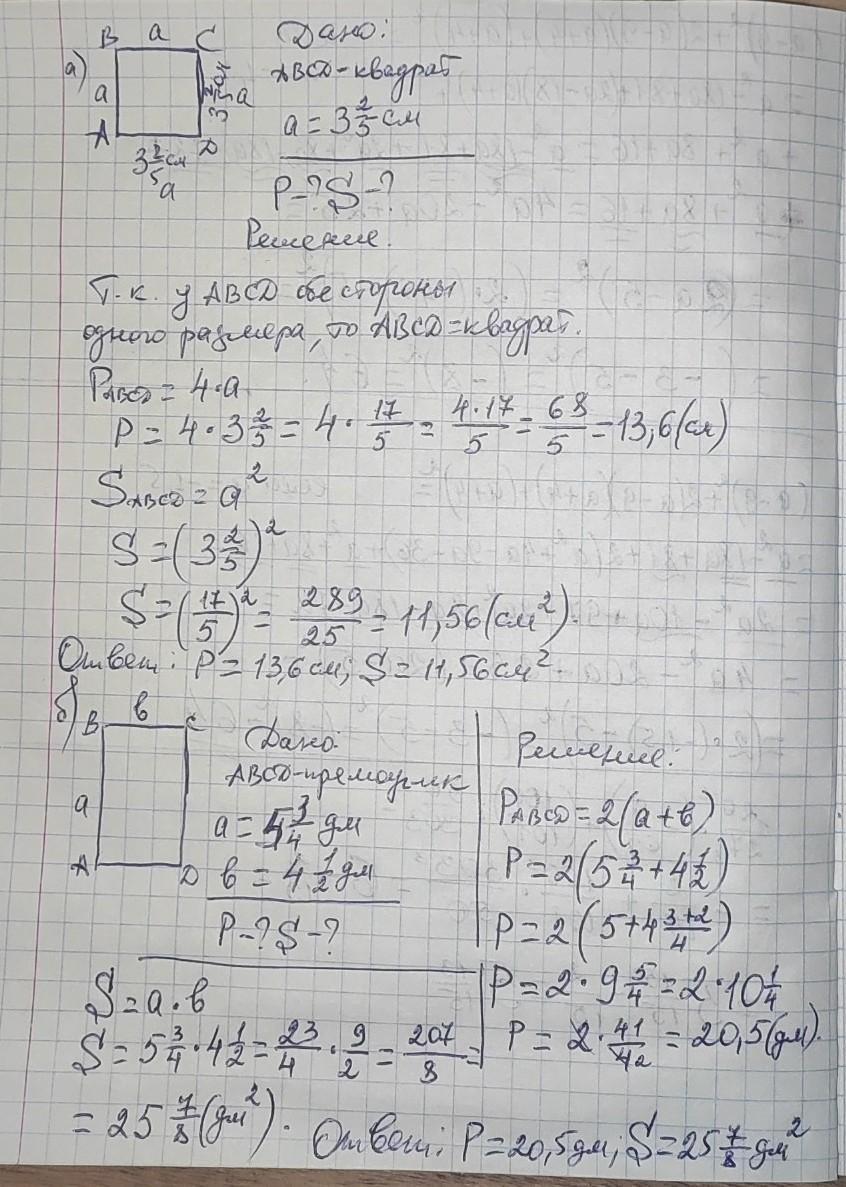 а)
B a C
a
3 2/5 см a
A D
3 2/5 см
a
Дано:
ABCD-квадрат
a = 3 2/5 см
P-? S-?
Решение.
Т.к. у ABCD обе стороны
одного размера, то ABCD = квадрат.
P ABCD = 4·a
P = 4·3 2/5 = 4· 17/5 = 4·17/5 = 68/5 = 13,6 (см)
S ABCD = a²
S = (3 2/5)²
S = (17/5)² = 289/25 = 11,56 (см²).
Ответ: P = 13,6 см; S = 11,56 см².
б)
B в C
a
A D
Дано:
ABCD-прямоуг-ик
a = 5 3/4 дм
в = 4 1/2 дм
P-? S-?
Решение:
P ABCD = 2(a+в)
P = 2(5 3/4 + 4 1/2)
P = 2(5+4 3+2/4)
P = 2·9 5/4 = 2·10 1/4
P = 2· 41/42 = 20,5 (дм).
S = a·в
S = 5 3/4 · 4 1/2 = 23/4 · 9/2 = 207/8 =
= 25 7/8 (дм²).
Ответ: P = 20,5 дм; S = 25 7/8 дм²